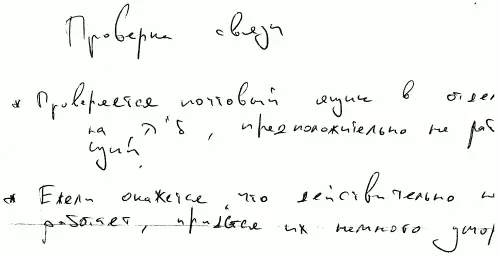 Проверка связи
* Проверяется почтовый ящик в
на, предположительно не раб
щий.
* Если окажется, что действительно н
работает, придётся их немного